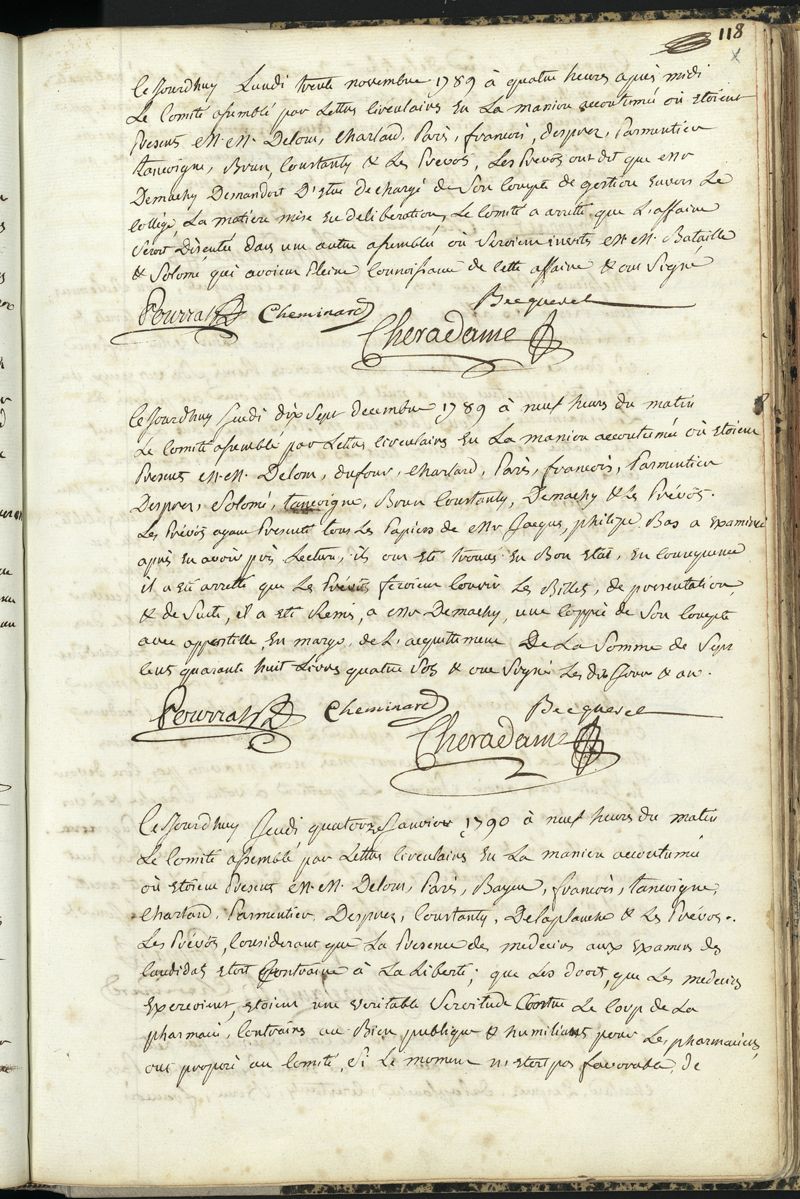 118
x
Ce Jourdhuy Lundi trente novembre 1789 à quatre heures après midi
Le Comité assemblé par Lettres Circulaires En La maniere accoutumée où etoient
Presens MM. Delour, Charlard, Paris, francois, despres, Parmentier
tancoigne, Brun, Constanty & Les Prevots, Les Prevots ont dit que Mr
Demachy Demandoit D'etre dechargé de Son Compte de gestion Envers Le
College, La matiere mise En deliberation, Le Comité a arreté que L'affaire
Seroit Discutée dans une autre assemblée où Seroient invités MM. Bataille
& Solomé qui avoient Pleine Connoissance de Cette affaire & ont Signé
Pourrat Cheminard Becqueret
Cheradame
Ce Jourdhuy Jeudi dix Sept decembre 1789 à neuf heures du matin
Le Comité assemblé par Lettres Circulaires En La maniere accoutumée où etoient
Presens MM. Delour, dufour, Charlard, Paris, francois, Parmentier
Despres, Solomé, tancoigne, Brun Constanty, Demachy & Les Prévôts.
Les Prévôts ayant Presenté tous Les Papiers de Mr Jacques, philippe Bas a Examiner
après En avoir pris Lecture, ils ont été trouvés En Bon Etat, En Consequence
il a été arreté que Les Prévôts feroient Courir Les Billets, de presentation,
& de Suite, il a été Remis, a Mr Demachy, une Coppie de Son Compte
avec appostille, En marge, de L'acquittement De La Somme de Sept
Cent quarante huit Livres quatre Sols & ont Signé Les dits Jour & an.
Pourrat Cheminard Becqueret
Cheradame
Ce Jourdhuy Jeudi quatorze Janvier 1790 à neuf heures du matin
Le Comité assemblé par Lettres Circulaires En La maniere accoutumée
où etoient Presens MM. Delour, Paris, Bayen, francois, tancoigne,
Charlard, Parmentier, Despres, Constanty, Delaplanche & Les Prévôts.
Les Prévôts, Considerant que La Presence des medecins aux Examens des
Candidats etoit Contraire à La Liberté; que Les droits, que Les medecins
Exercoient, etoient une veritable Servitude Contre Le Corps de La
pharmacie, Contraire au Bien publique & humiliant pour Les pharmaciens,
ont proposé au Comité, Si Le moment n'etoit pas favorable, de